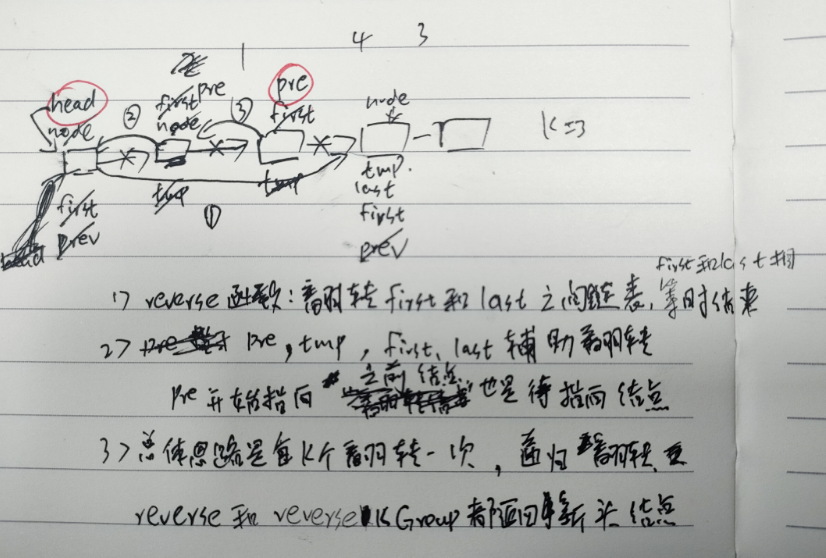 1 4 3
head pre
node ② first pre ③ first node K=3
node
tmp tmp tmp
last
first ① first
prev prev
first和last相
1> reverse函数：翻转first和last之间链表，等时结束
2> pre, tmp, first, last 辅助翻转
之前结点
pre开始指向 也是待指向结点
3> 总体思路是每K个翻转一次，递归翻转
reverse和reverseKGroup都返回新头结点